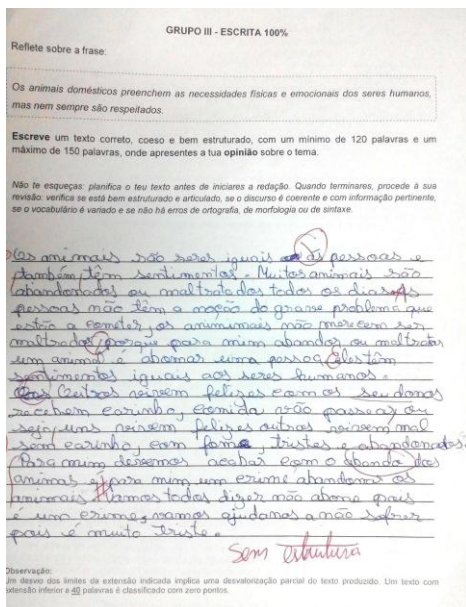 GRUPO III - ESCRITA 100%
Reflete sobre a frase:
Os animais domésticos preenchem as necessidades físicas e emocionais dos seres humanos,
mas nem sempre são respeitados.
Escreve um texto correto, coeso e bem estruturado, com um mínimo de 120 palavras e um
máximo de 150 palavras, onde apresentes a tua opinião sobre o tema.
Não te esqueças: planifica o teu texto antes de iniciares a redação. Quando terminares, procede à sua
revisão: verifica se está bem estruturado e articulado, se o discurso é coerente e com informação pertinente,
se o vocabulário é variado e se não há erros de ortografia, de morfologia ou de sintaxe.
Os animais são seres iguais às pessoas e
também têm sentimentos. Muitos animais são
abandonados ou maltratados todos os dias. As
pessoas não têm a noção do grande problema que
estão a cometer, os animais não merecem ser
maltrados porque para mim abandos ou maltratar
um animal é abomar uma pessoa Eles têm
sentimentos iguais aos seres humanos.
Outros vivem felizes com os seu donos
recebem carinho, comida vão passear ou
seja uns vivem felizes outros vivem mal
sem carinho, com fome, tristes e abandonados.
Para mim devemos acabar com o abando dos
animas é para mim um crime abandonar os
animais vamos todos dizer não abome pois
é um crime, vamos ajudanos a não sofrer
pois é muito triste.
Sem estrutura
Observação:
Um desvio dos limites da extensão indicada implica uma desvalorização parcial do texto produzido. Um texto com
extensão inferior a 40 palavras é classificado com zero pontos.